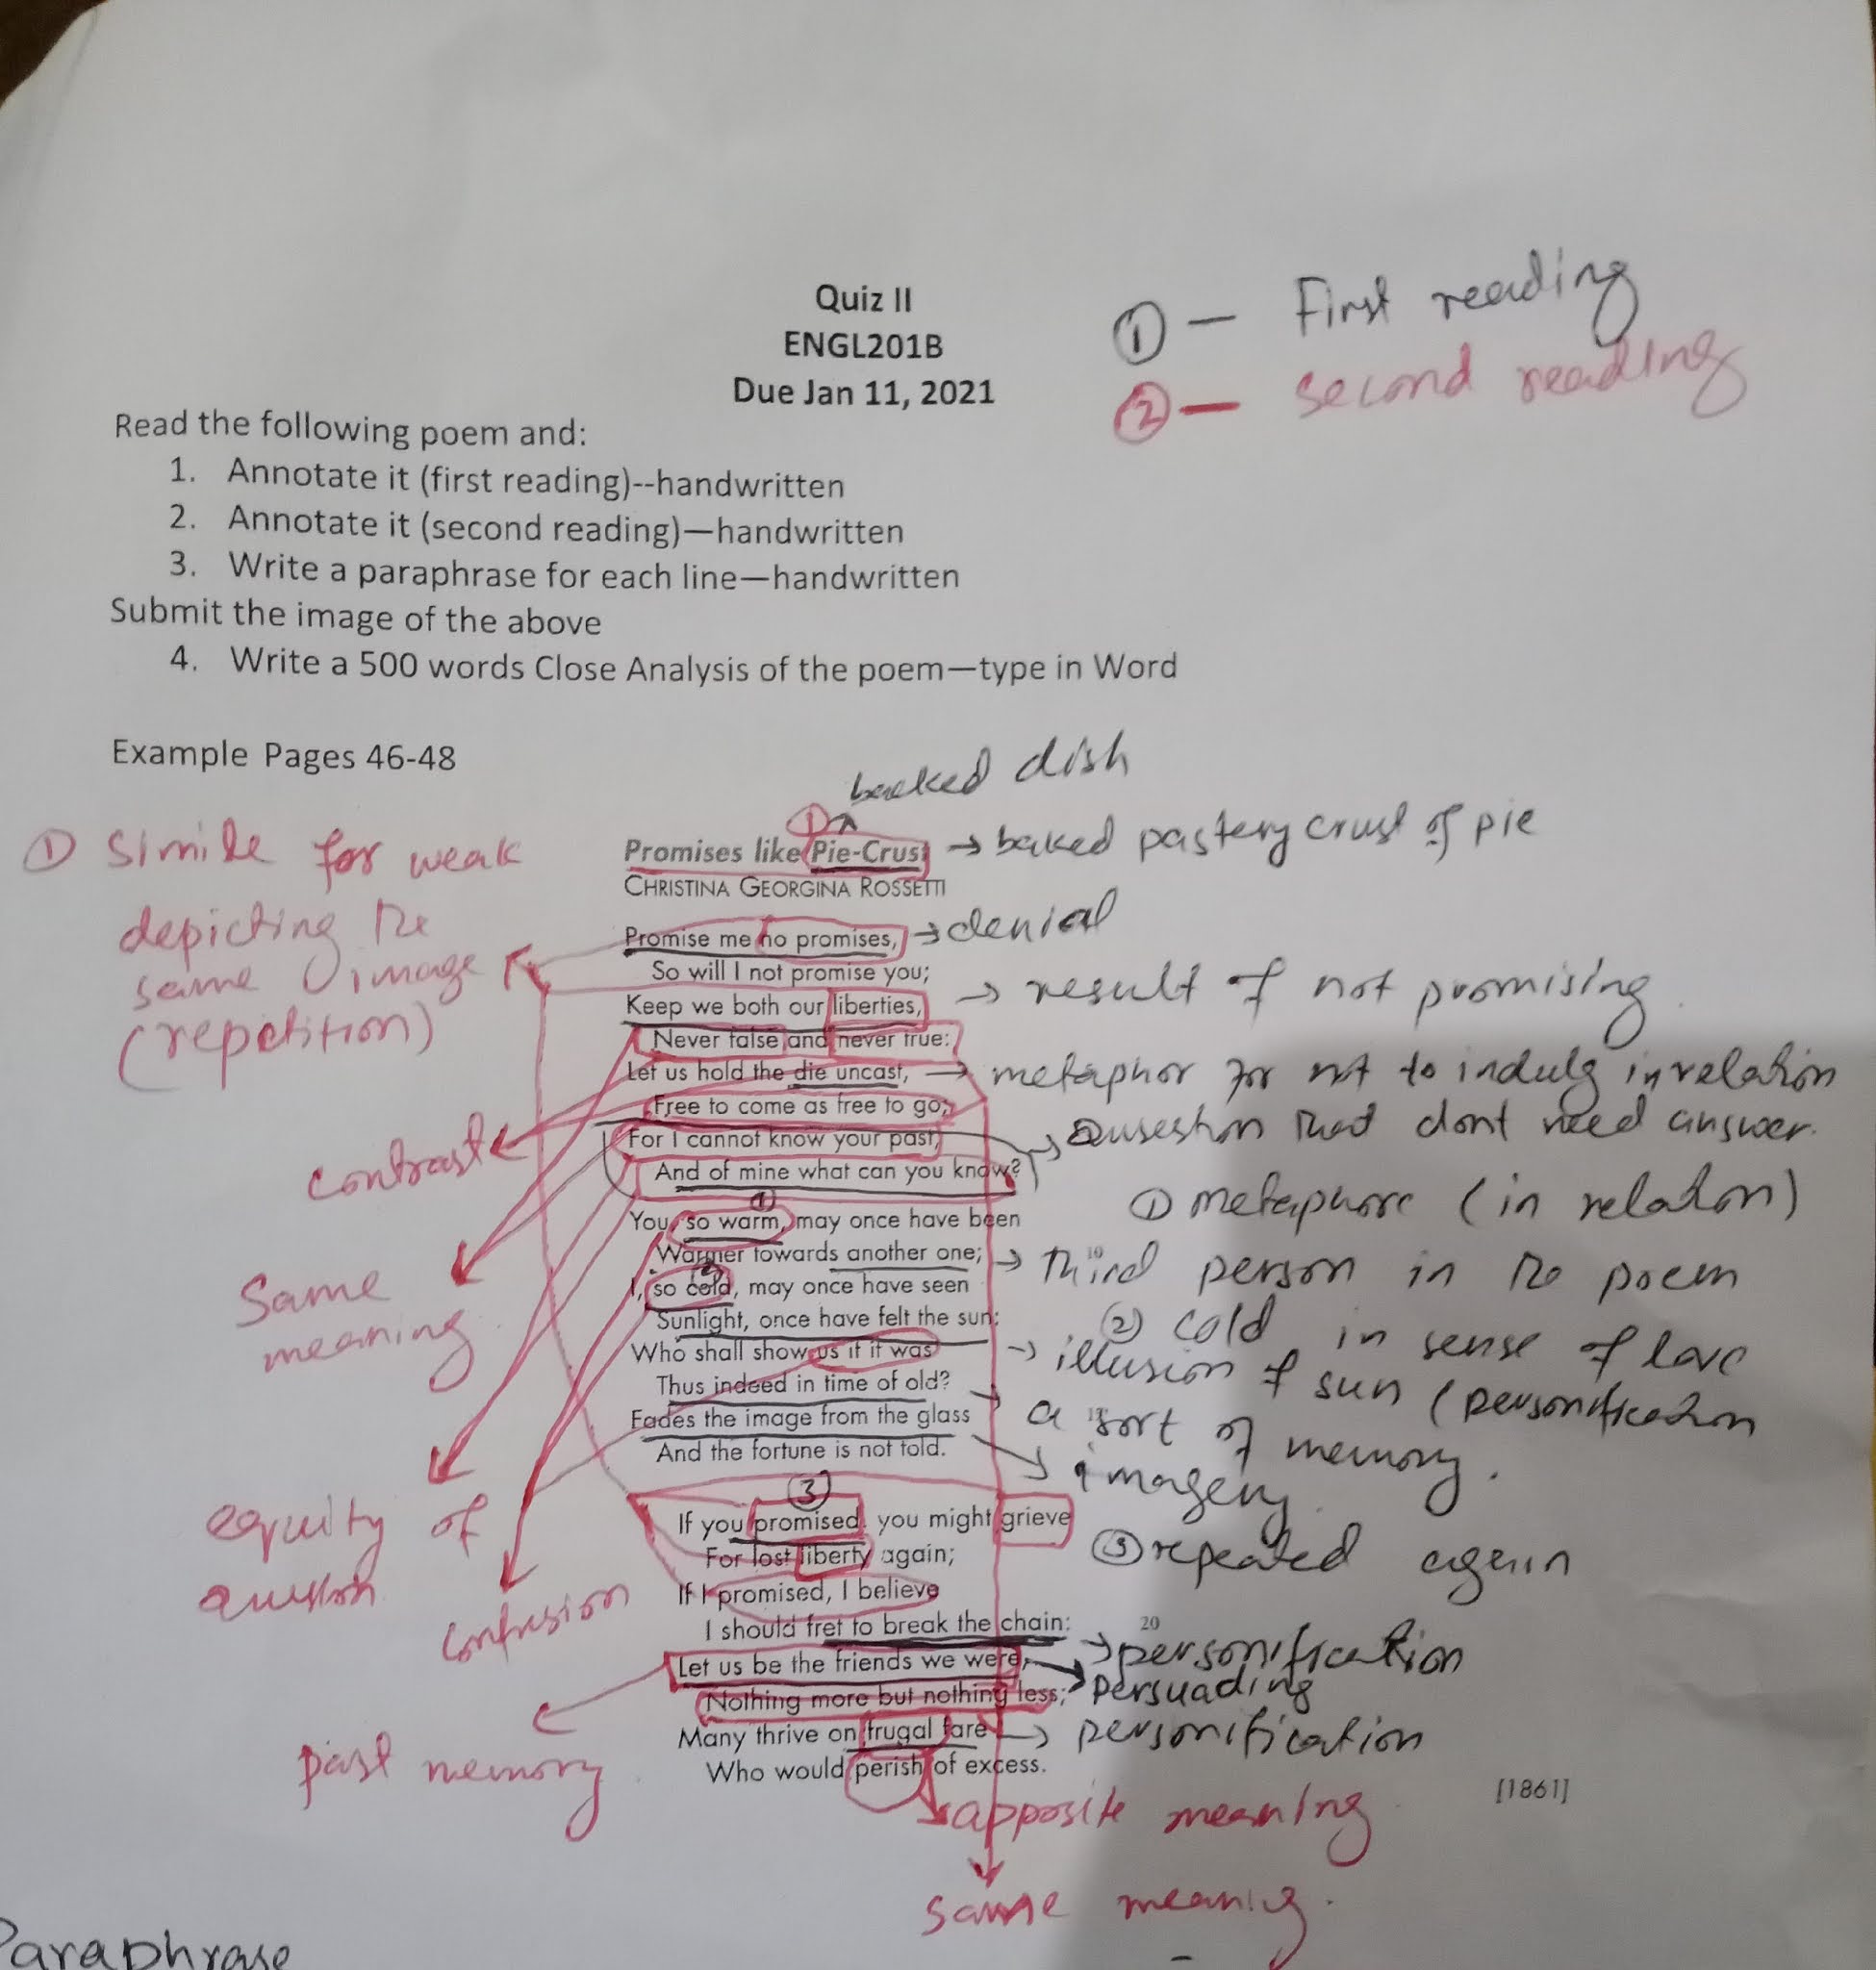 Quiz II
ENGL201B
Due Jan 11, 2021
① — First reading
② — Second reading
Read the following poem and:
1. Annotate it (first reading)--handwritten
2. Annotate it (second reading)—handwritten
3. Write a paraphrase for each line—handwritten
Submit the image of the above
4. Write a 500 words Close Analysis of the poem—type in Word
Example Pages 46-48
baked dish
① Simile for weak
depicting the
same image
(repetition)
①
Promises like Pie-Crust → baked pastery crust of pie
CHRISTINA GEORGINA ROSSETTI
Promise me no promises, → denial
So will I not promise you;
Keep we both our liberties, → result of not promising
Never false and never true:
Let us hold the die uncast, → metaphor for not to indulg in relation
Free to come as free to go;
For I cannot know your past, → Quseston that dont need answer.
And of mine what can you know?
contrast
①
You, so warm, may once have been
① metaphore (in relation)
Warmer towards another one; → Third person in the poem
10
②
I, so cold, may once have seen
② cold in sense of love
Sunlight, once have felt the sun:
Same
meaning
Who shall show us if it was → illusion of sun (personification
Thus indeed in time of old? → a sort of memory.
Fades the image from the glass → imagery
And the fortune is not told.
equity of
confusion
③
If you promised, you might grieve
③ repeated again
For lost liberty again;
If I promised, I believe
I should fret to break the chain: → personification
20
Let us be the friends we were, → Persuading
Nothing more but nothing less;
past memory
Many thrive on frugal fare → personification
Who would perish of excess.
[1861]
apposite meaning
same meaning.
Paraphrase